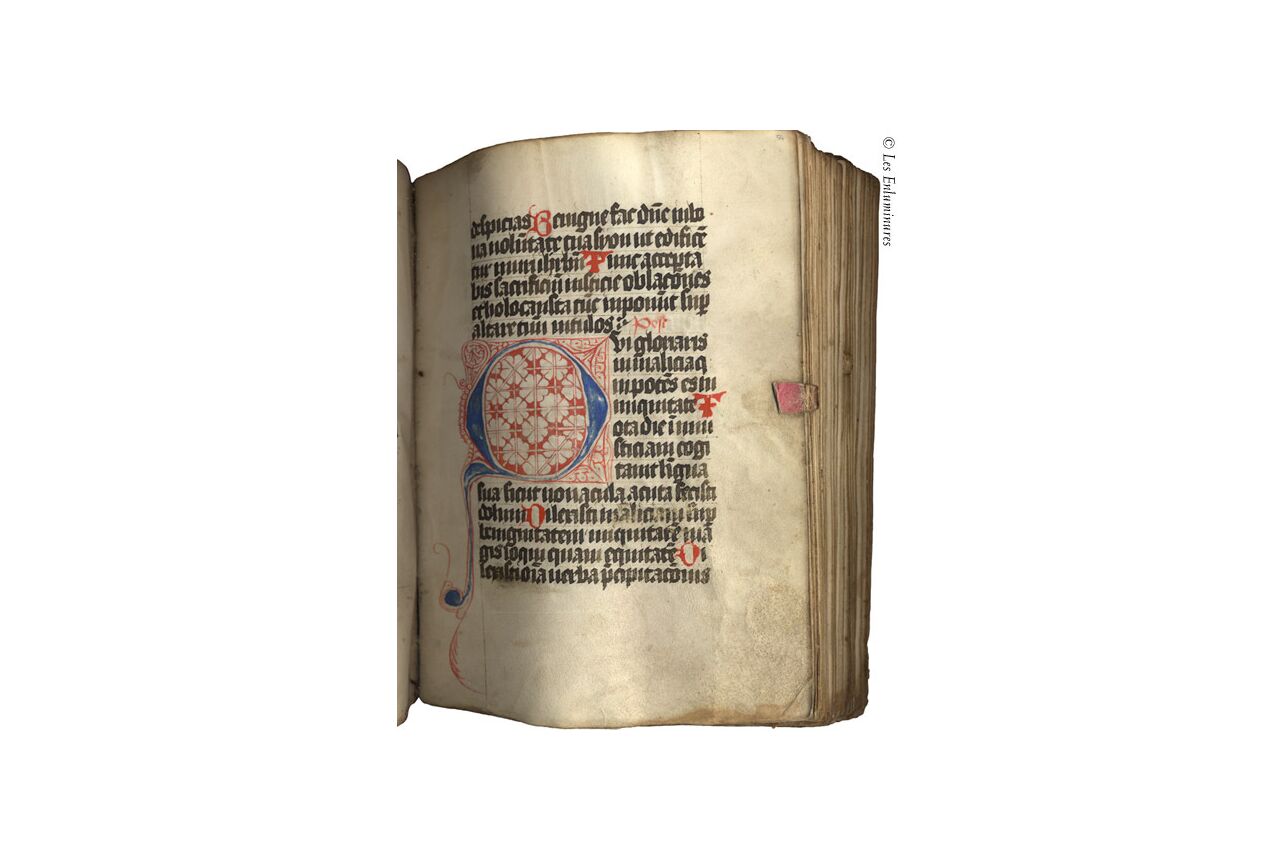 despicias Benigne fac dn̄e in bo
na volūtate tua syon ut edificē
tur muri ihrl̄m Tunc accepta
bis sacrificiū iusticie oblac̄ones
et holocausta tūc inponūt sup̄
altare tuū vitulos Ps̄
Qvi gloriaris
in malicia q
in potēs es in
iniquitate T
ota die ī iniu
sticiam cogi
tauit līgua
sua sicut nouacula acuta fecisti
dolum Dilexisti maliciam sup̄
benignitatem iniquitatē ma
gis loqui quam equitatē Di
lexisti oīa verba p̄cipitac̄onis
© Les Enluminures